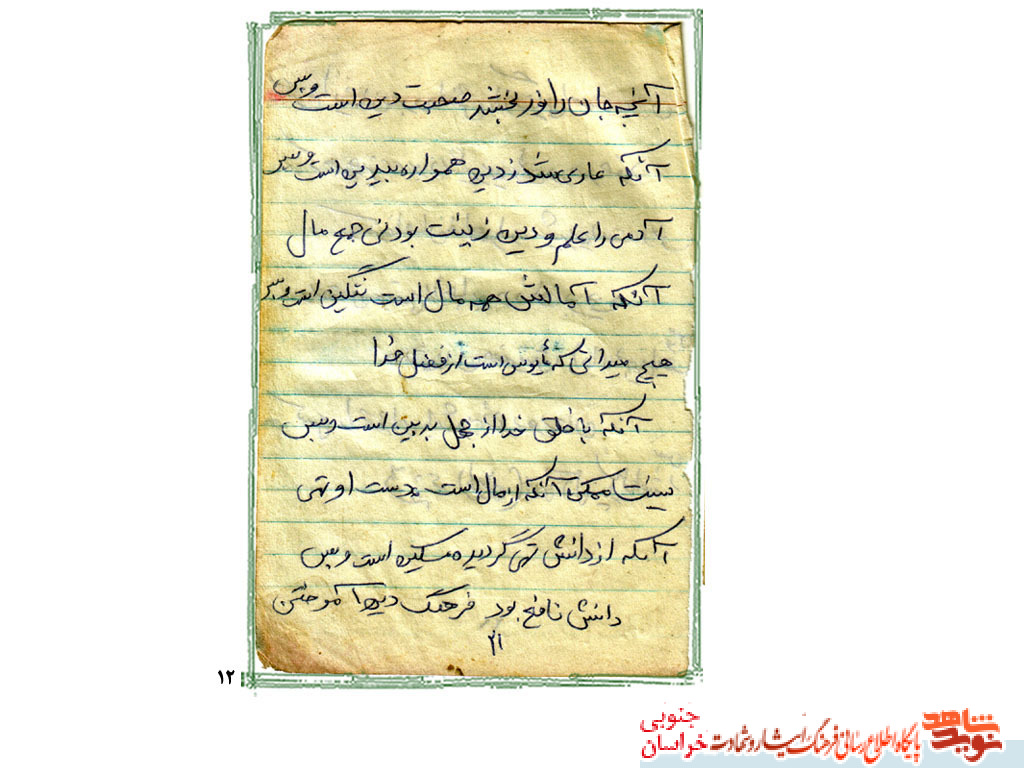 آنچه جان را نور بخشد صحبت دین است و بس
آنکه عاری شد ز دین همواره بیدین است و بس
آدمی را علم و دین زینت بود نی جمع مال
آنکه آمالش همه مال است ننگین است و بس
هیچ میدانی که مأیوس است از فضل خدا
آنکه با خلق خدا از جهل بدبین است و بس
نیست مسکین آنکه از مال است بدست او تهی
آنکه از دانش تهی گردیده مسکین است و بس
دانش نافع بود فرهنگ دین آموختن
۲۱
۱۲
نوید شاهد
پایگاه اطلاع رسانی فرهنگ ایثار و شهادت
خراسان جنوبی